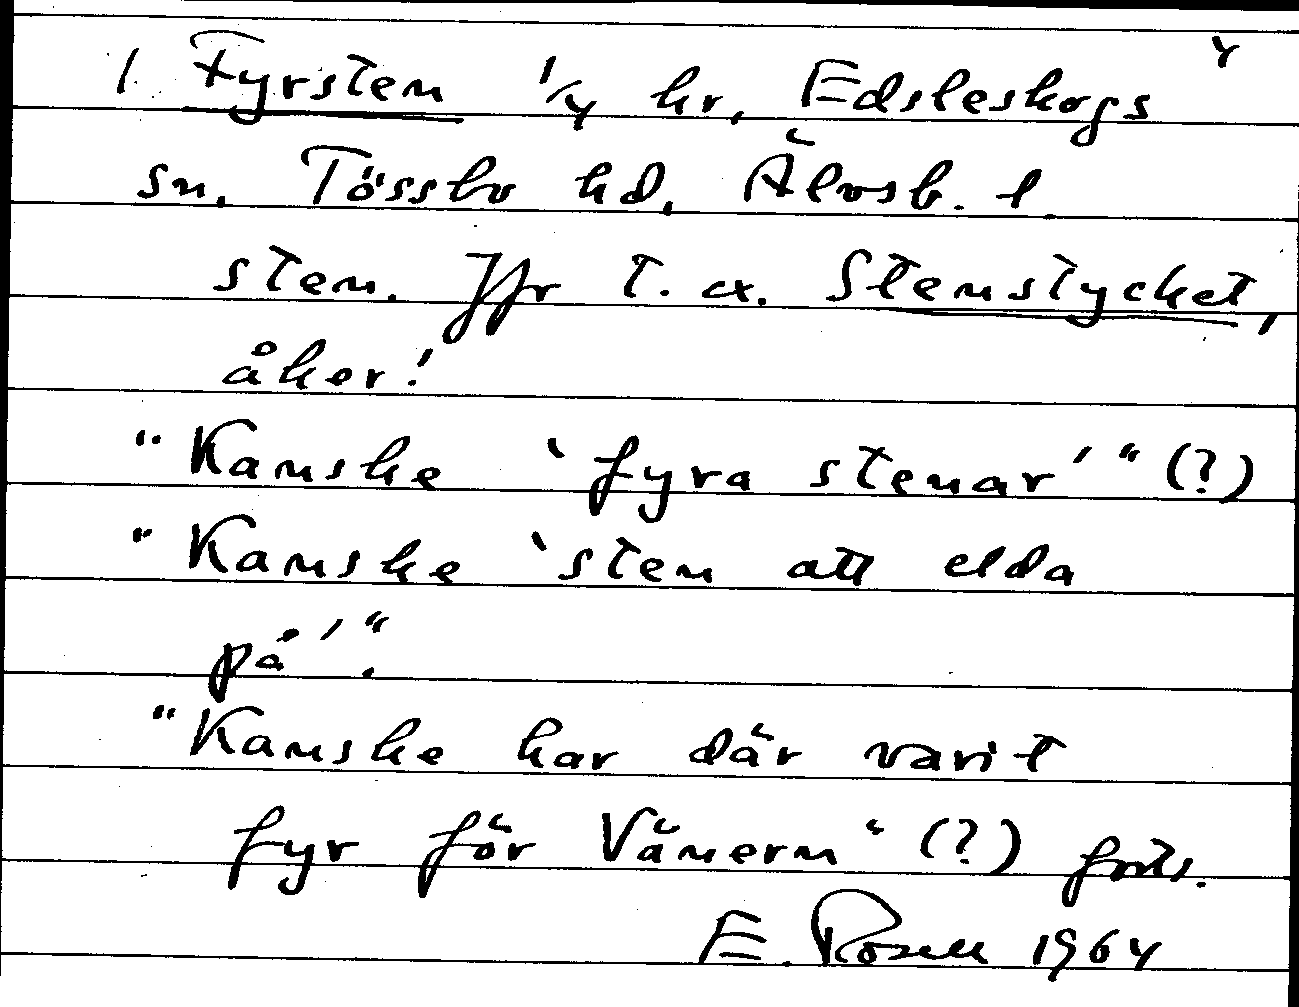 1. Fyrsten 1/4 hr, Edsleskogs 4
sn. Tössbo hd. Älvsb. l.
sten. Jfr t. ex. Stenstycket,
åker!
"Kanske 'fyra stenar'" (?)
"Kanske 'sten att elda
på'".
"Kanske har där varit
fyr för Vänern" (?) forts.
E. Rosell 1964